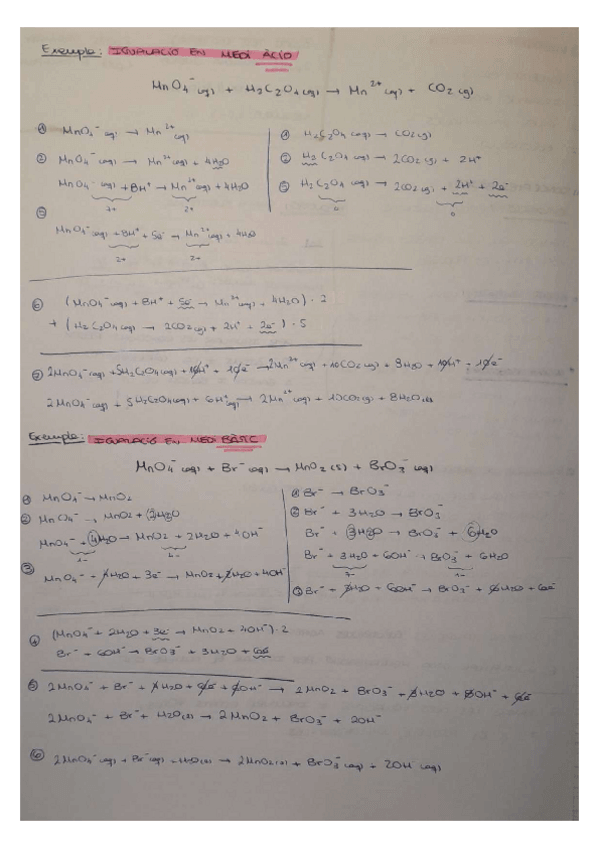 Exemple: IGUALACIÓ EN MEDI ÀCID
MnO4⁻(aq) + H2C2O4(aq) → Mn²⁺(aq) + CO2(g)
① MnO4⁻(aq) → Mn²⁺(aq)
② MnO4⁻(aq) → Mn²⁺(aq) + 4H2O
MnO4⁻(aq) + 8H⁺ → Mn²⁺(aq) + 4H2O
7+ 2+
③
MnO4⁻(aq) + 8H⁺ + 5e⁻ → Mn²⁺(aq) + 4H2O
2+ 2+
① H2C2O4(aq) → CO2(g)
② H2C2O4(aq) → 2CO2(g) + 2H⁺
③ H2C2O4(aq) → 2CO2(g) + 2H⁺ + 2e⁻
0 0
⑥ (MnO4⁻(aq) + 8H⁺ + 5e⁻ → Mn²⁺(aq) + 4H2O) · 2
+ (H2C2O4(aq) → 2CO2(g) + 2H⁺ + 2e⁻) · 5
⑦ 2MnO4⁻(aq) + 5H2C2O4(aq) + 16H⁺ + 10e⁻ → 2Mn²⁺(aq) + 10CO2(g) + 8H2O + 10H⁺ + 10e⁻
2MnO4⁻(aq) + 5H2C2O4(aq) + 6H⁺(aq) → 2Mn²⁺(aq) + 10CO2(g) + 8H2O(l)
Exemple: IGUALACIÓ EN MEDI BÀSIC
MnO4⁻(aq) + Br⁻(aq) → MnO2(s) + BrO3⁻(aq)
① MnO4⁻ → MnO2
② MnO4⁻ → MnO2 + 2H2O
MnO4⁻ + 4H2O → MnO2 + 2H2O + 4OH⁻
1- 4-
③ MnO4⁻ + 4H2O + 3e⁻ → MnO2 + 2H2O + 4OH⁻
① Br⁻ → BrO3⁻
② Br⁻ + 3H2O → BrO3⁻
Br⁻ + 3H2O → BrO3⁻ + 6H2O
Br⁻ + 3H2O + 6OH⁻ → BrO3⁻ + 6H2O
7- 1-
③ Br⁻ + 3H2O + 6OH⁻ → BrO3⁻ + 6H2O + 6e⁻
④ (MnO4⁻ + 2H2O + 3e⁻ → MnO2 + 4OH⁻) · 2
Br⁻ + 6OH⁻ → BrO3⁻ + 3H2O + 6e⁻
⑤ 2MnO4⁻ + Br⁻ + 4H2O + 6e⁻ + 6OH⁻ → 2MnO2 + BrO3⁻ + 3H2O + 8OH⁻ + 6e⁻
2MnO4⁻ + Br⁻ + H2O(l) → 2MnO2 + BrO3⁻ + 2OH⁻
⑥ 2MnO4⁻(aq) + Br⁻(aq) + H2O(l) → 2MnO2(s) + BrO3⁻(aq) + 2OH⁻(aq)